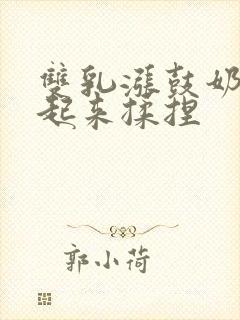 雙乳漲鼓奶
起来揉捏
郭小荷